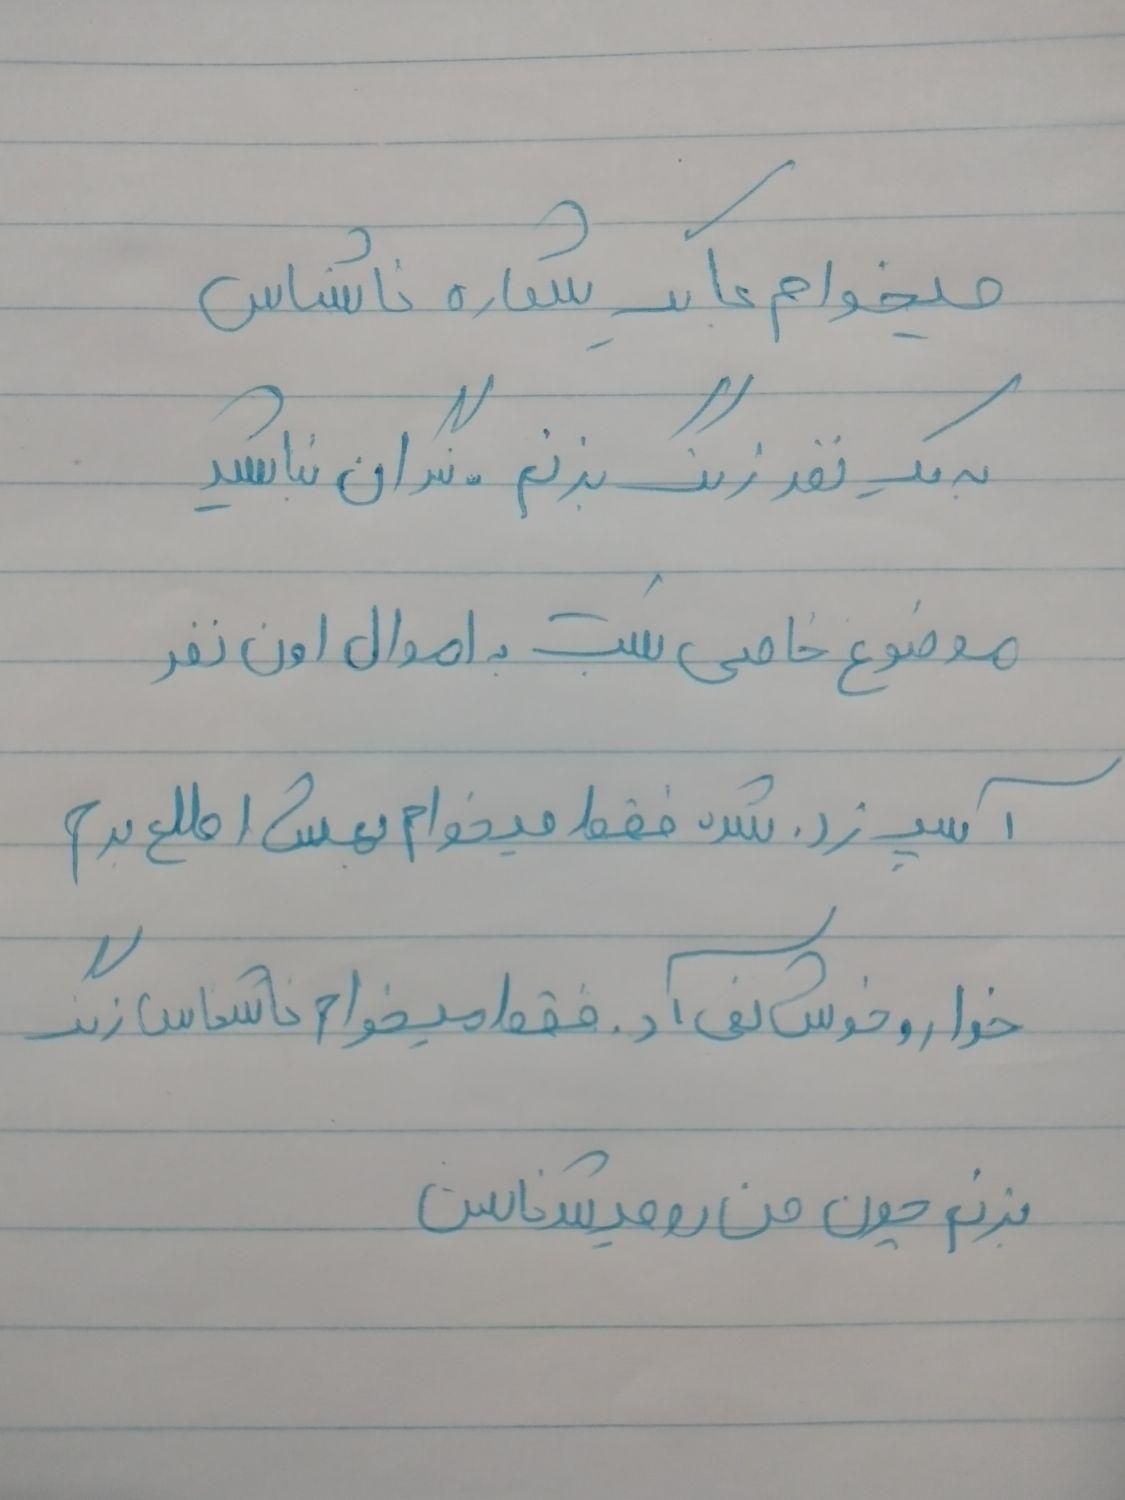 میخوام با یک شماره ناشناس
به یک نفر زنگ بزنم. نگران نباشید
موضوع خاصی نیست به اموال اون نفر
آسیب زده شده فقط میخوام بهش اطلاع بدم
خدا رو خوش نمی آد. فقط میخوام ناشناس زنگ
بزنم چون من رو میشناسن